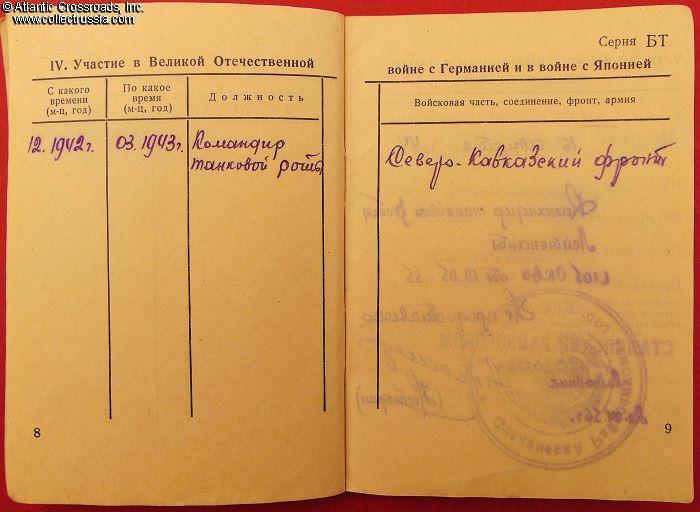 © Atlantic Crossroads, Inc.
www.collectrussia.com
IV. Участие в Великой Отечественной
С какого времени (м-ц, год)
По какое время (м-ц, год)
Должность
12. 1942 г.
03. 1943 г.
Командир
танковой роты
8
Серия БТ
войне с Германией и в войне с Японией
Войсковая часть, соединение, фронт, армия
Северо-Кавказский фронт
9